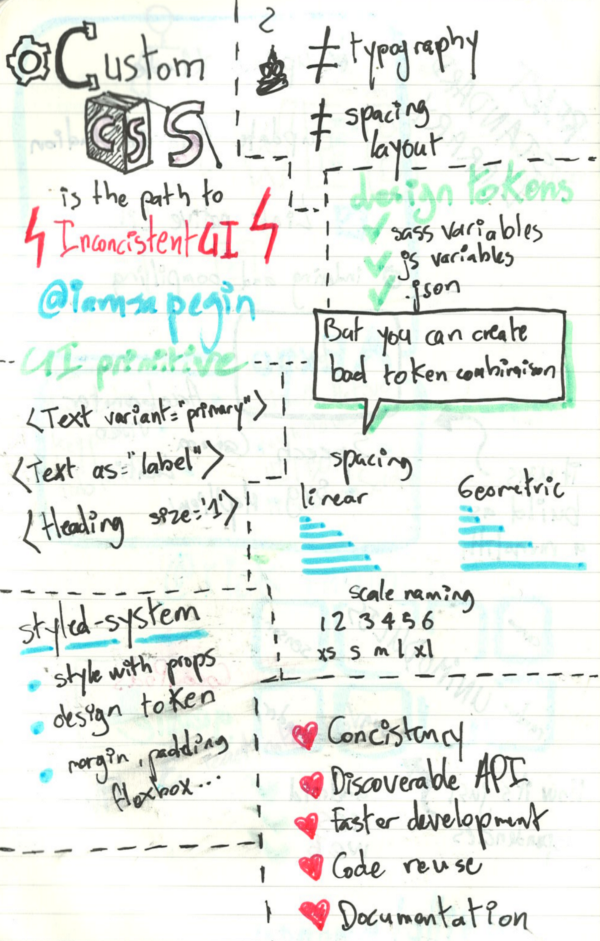 Custom
CSS
is the path to
Inconcistent UI
@iamsapegin
≠ typography
≠ spacing
layout
design tokens
✓ sass variables
✓ js variables
✓ .json
But you can create
bad token combinaison
UI primitive
<Text variant="primary">
<Text as="label">
<Heading size='1'>
spacing
linear
Geometric
scale naming
1 2 3 4 5 6
xs s m l xl
styled-system
style with props
design token
margin, padding
flexbox...
Concistency
Discoverable API
Faster development
Code reuse
Documentation